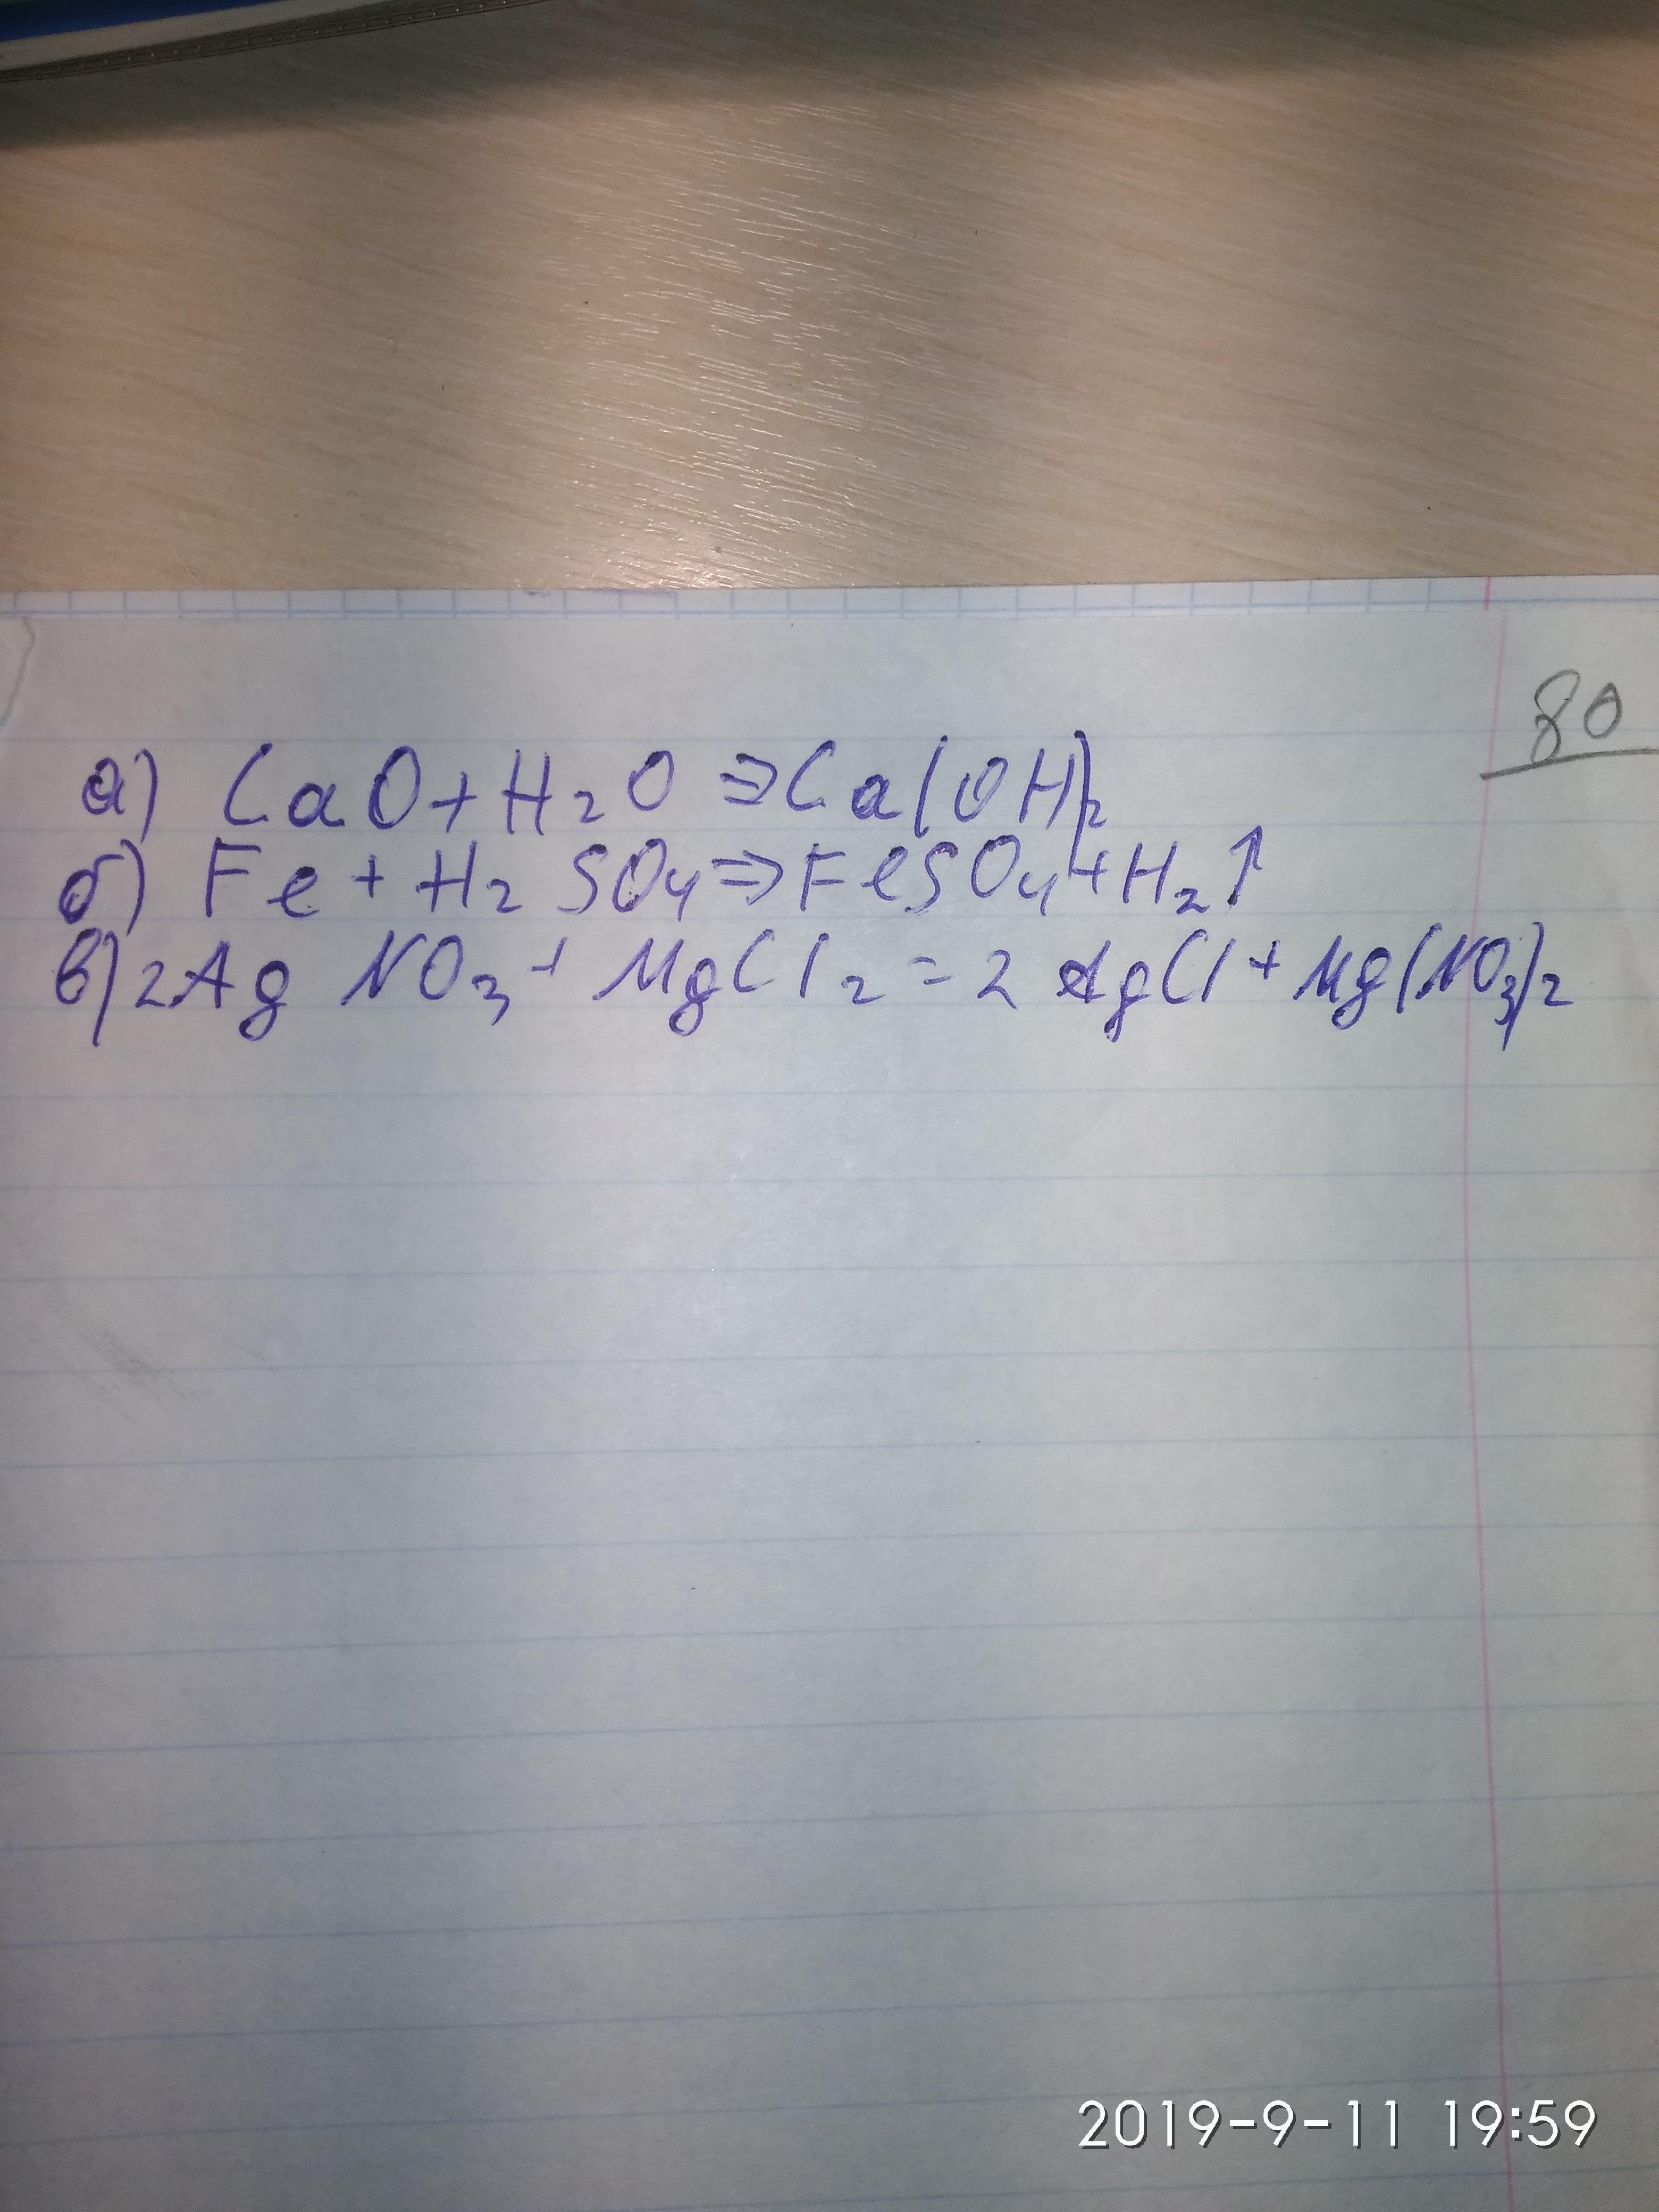 80
а) CaO + H₂O ⇒ Ca(OH)₂
б) Fe + H₂SO₄ ⇒ FeSO₄ + H₂↑
в) 2AgNO₃ + MgCl₂ = 2AgCl + Mg(NO₃)₂
2019-9-11 19:59